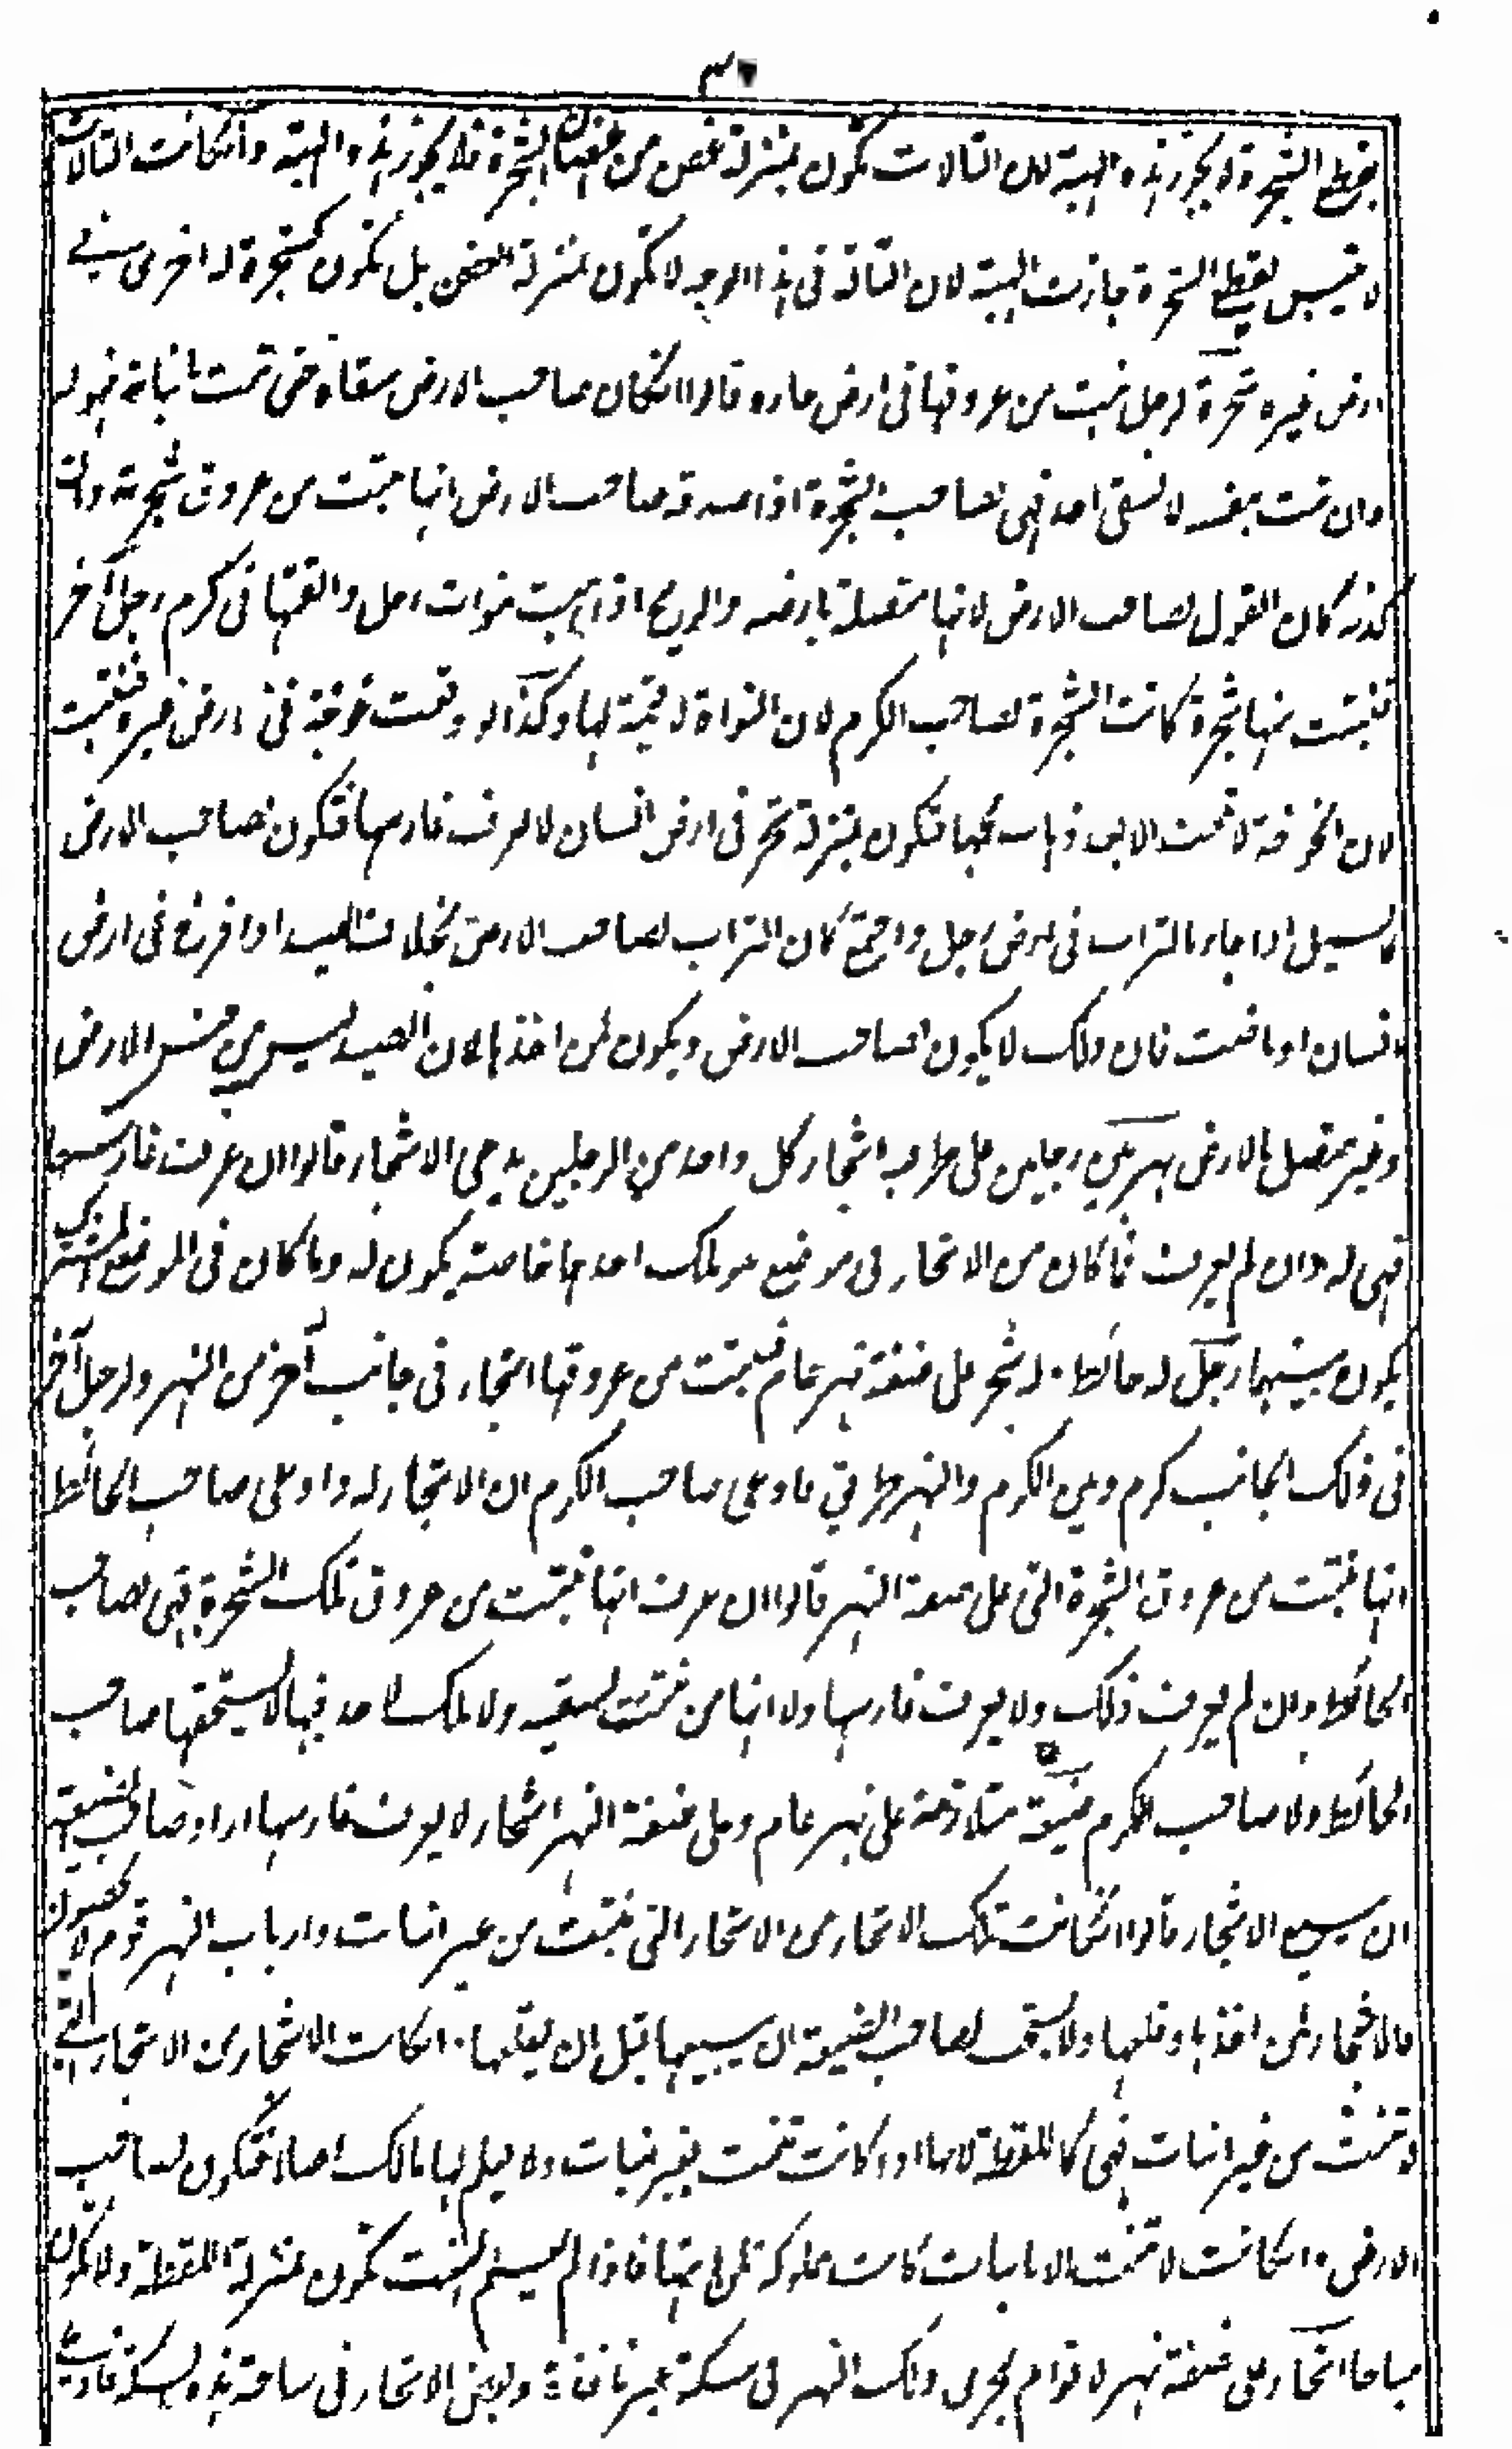 بقطع الشجرة لا يجوز هذه الهبة لان التالات تكون بمنزلة غصن من اغصان الشجرة فلا يجوز هذه الهبة وانكانت التالات
لا تيبس بقطع الشجرة جازت الهبة لان التالة فى هذا الوجه لا تكون بمنزلة الغصن بل تكون كشجرة له اخرى فى
ارض غيره شجرة لرجل نبت من عروقها فى ارض جاره قالوا انكان صاحب الارض سقاه حتى نبت بانباته فهو له
وان نبت بنفسه لا بسقى احد فهى لصاحب الشجرة اذا صدقه صاحب الارض انها نبتت من عروق شجرته وان
كذبه كان القول لصاحب الارض لانها متصلة بارضه والريح اذا هبت بنواة رجل والقتها فى كرم رجل آخر
فنبتت منها شجرة كانت الشجرة لصاحب الكرم لان النواة لا قيمة لها وكذا لو وقعت خوخة فى ارض غيره فنبتت
لان الخوخة لا تنبت الا بعد ذهاب لحمها فتكون بمنزلة شجر فى ارض انسان لا يعرف غارسها فتكون لصاحب الارض
كالسيل اذا جاء بالتراب فى ارض رجل واجتمع كان التراب لصاحب الارض بخلاف الصيد اذا افرخ فى ارض
انسان او باضت فان ذلك لا يكون لصاحب الارض ويكون لمن اخذها لان الصيد ليس من جنس الارض
وغير متصل بالارض نهر بين رجلين على طرفيه اشجار كل واحد من الرجلين يدعى الاشجار قالوا ان عرف غارسها
فهى له وان لم يعرف فما كان من الاشجار فى موضع هو ملك احدهما خاصة يكون له وما كان فى الموضع المشترك
يكون بينهما رجل له حائط له شجر على ضفة نهر عام فنبتت من عروقها اشجار فى جانب آخر من النهر ولرجل آخر
فى ذلك الجانب كرم وبين الكرم والنهر طريق فادعى صاحب الكرم ان الاشجار له وادعى صاحب الحائط
انها نبتت من عروق الشجرة التى على ضفة النهر قالوا ان عرف انها نبتت من عروق تلك الشجرة فهى لصاحب
الحائط وان لم يعرف ذلك ولا يعرف غارسها ولا انها من نبتت بسقيه ولا ملك لاحد فيها لا يستحقها صاحب
الحائط ولا صاحب الكرم ضيعة متلازقة على نهر عام وعلى ضفة النهر اشجار لا يعرف غارسها اراد صاحب الضيعة
ان يبيع الاشجار قالوا انكانت تلك الاشجار من الاشجار التى نبتت من غير انبات وارباب النهر قوم لا يحصون
فالاشجار لمن اخذها وقلعها ولا يستحب لصاحب الضيعة ان يبيعها قبل ان يقلعها انكانت الاشجار من الاشجار التى
لا تنبت من غير انبات فهى كاللقطة لانها اذا كانت تنبت بغير نبات ولا يعلم لها مالك اصلا فتكون لصاحب
الارض وانكانت لا تنبت الا بانبات كانت مملوكة لمن انبتها فاذا لم يعلم المنبت تكون بمنزلة اللقطة ولا تكون
مباحا اشجار على ضفة نهر لاقوام يجرى ذلك النهر فى سكة غير نافذة وبعض الاشجار فى ساحة هذه السكة فادعى